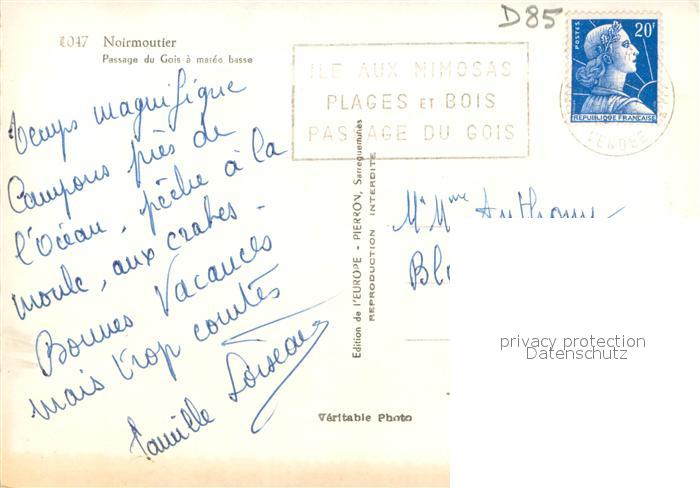 D85
1047 Noirmoutier
Passage du Gois à marée basse
ILE AUX MIMOSAS
PLAGES ET BOIS
PASSAGE DU GOIS
POSTES
20F
REPUBLIQUE FRANÇAISE
VENDEE
Temps magnifique
Campons près de
l'Océan, pêche à la
moule, aux crabes -
Bonnes Vacances
mais trop courtes
Famille Loiseau
Edition de l'EUROPE - PIERRON, Sarreguemines
REPRODUCTION INTERDITE
Mr Mme Anthony
Véritable Photo
privacy protection
Datenschutz